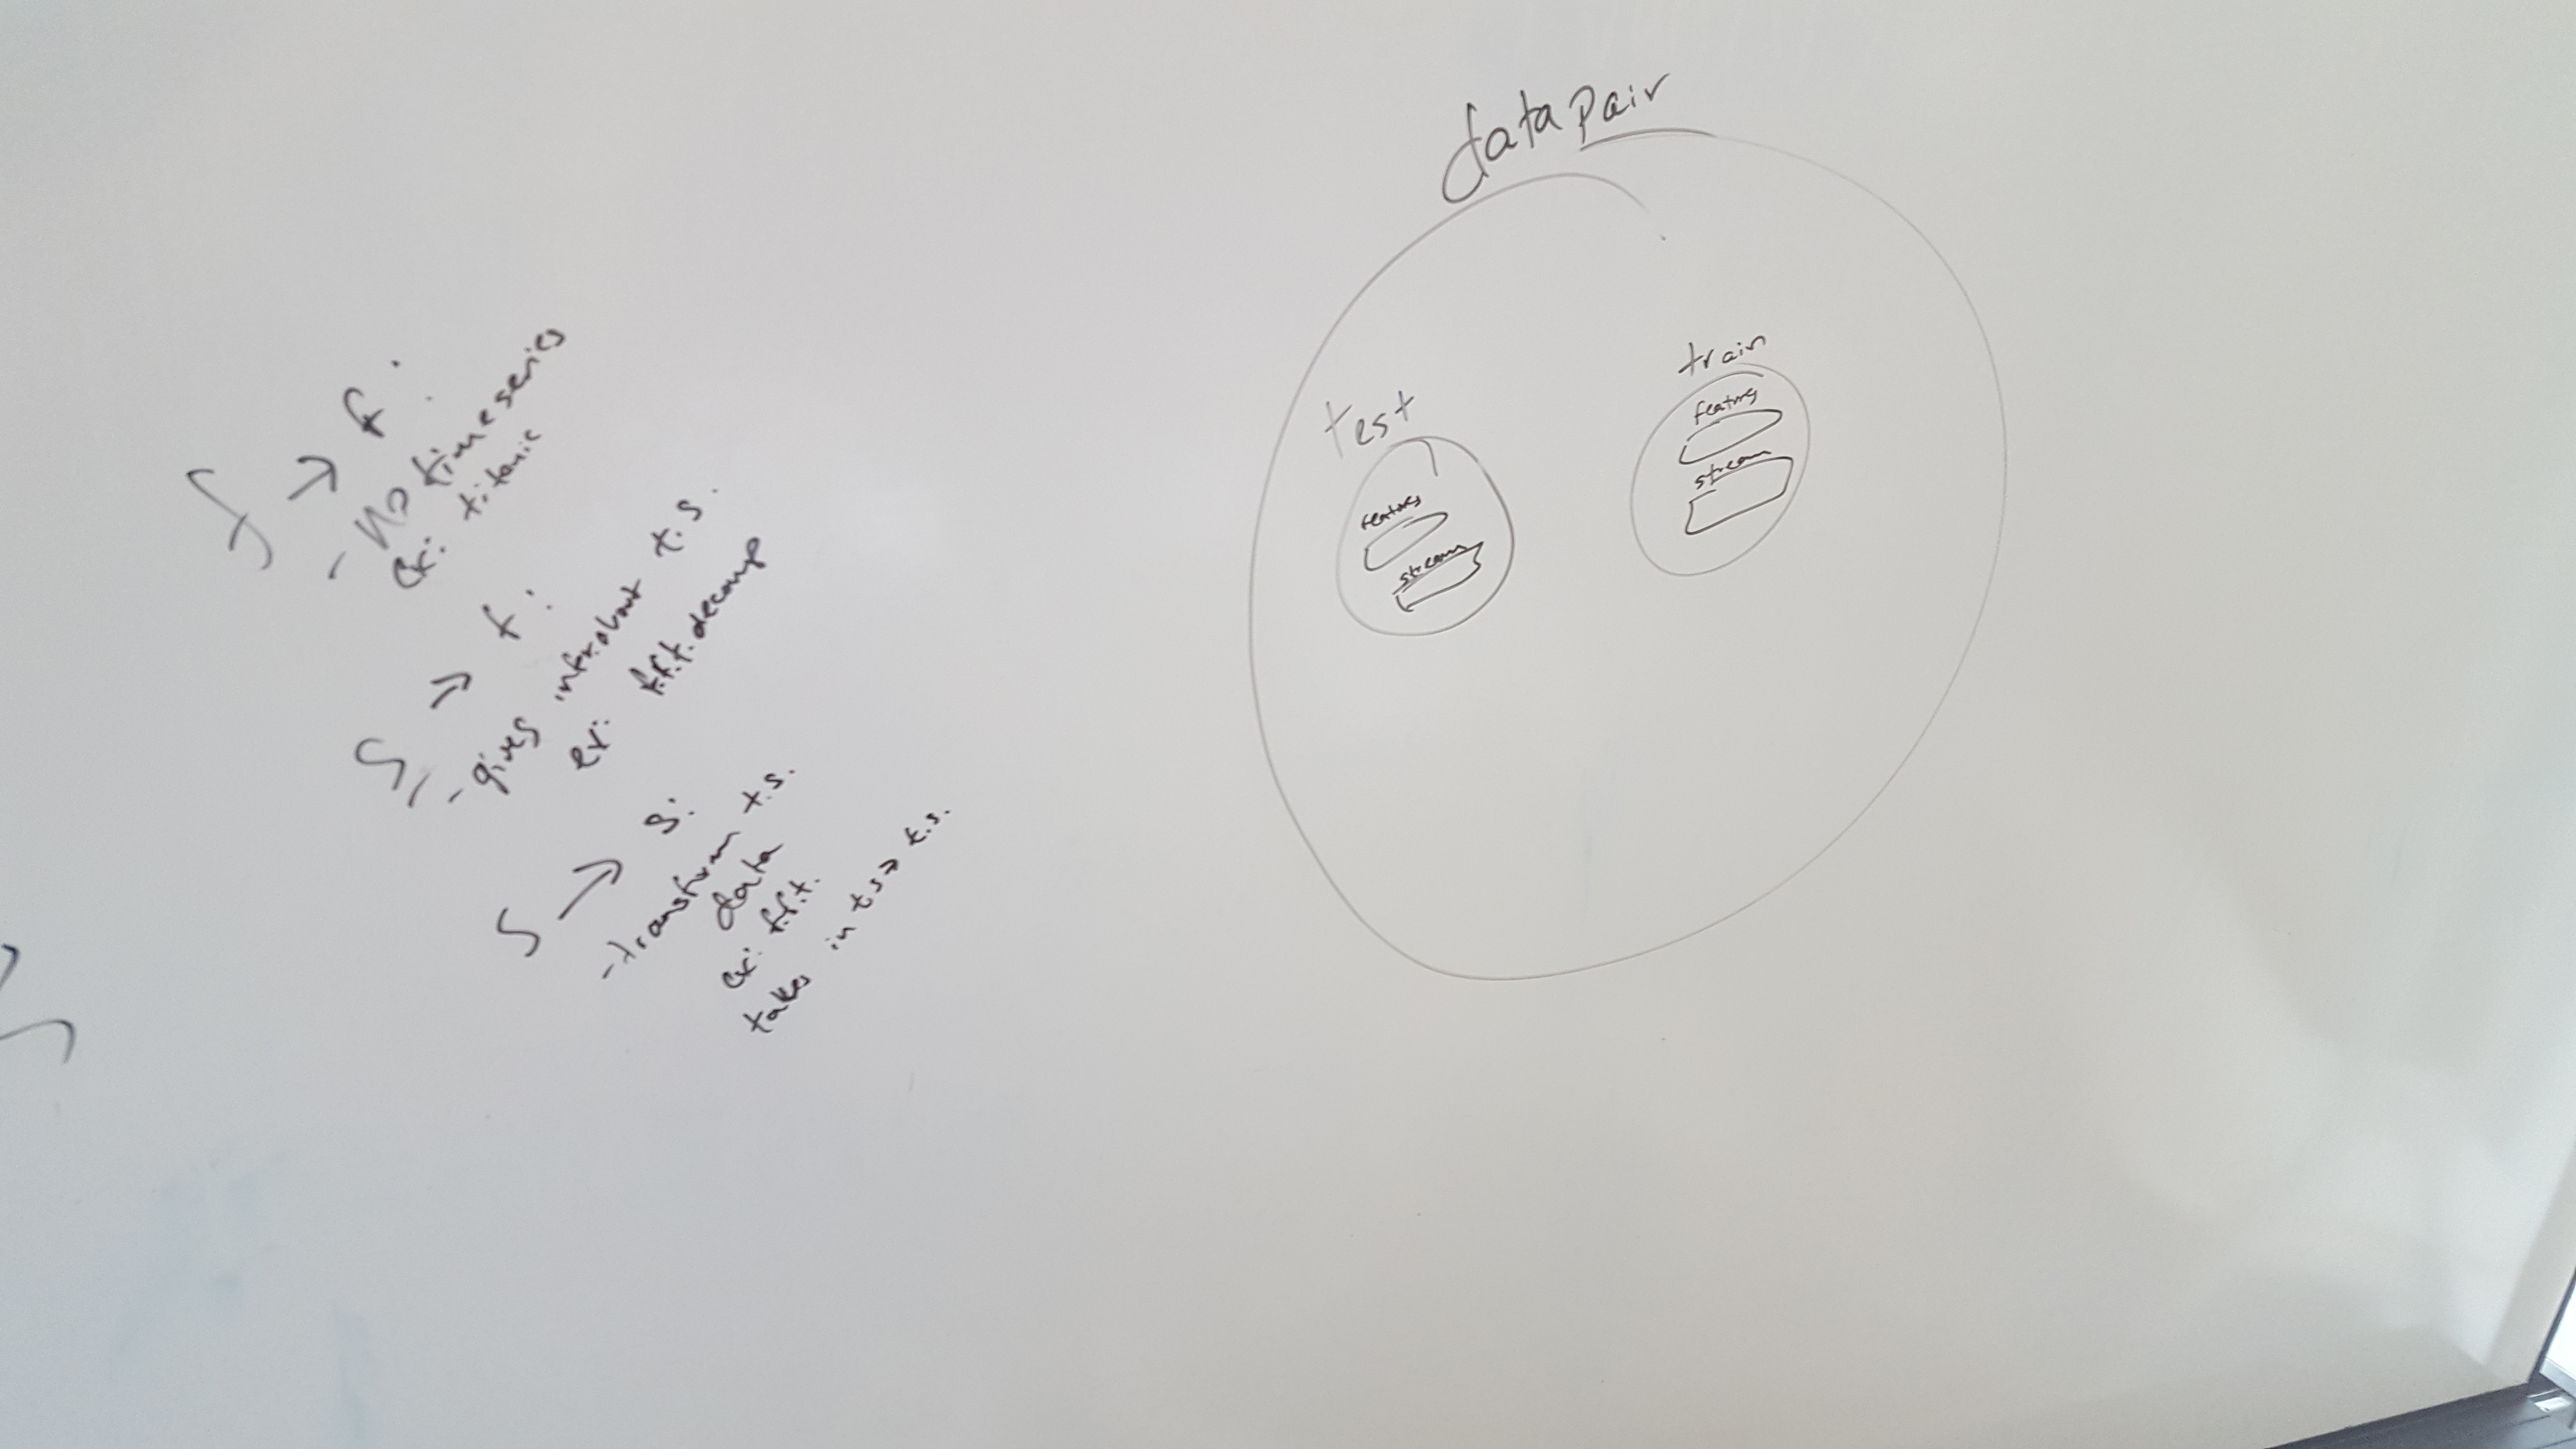 f → f:
- No time series
ex: titanic
s → f:
- gives info about t.s.
ex: f.f.t. decomp
s → s:
- transform t.s.
data
ex: f.f.t.
takes in t.s → t.s.
data pair
test
features
stream
train
features
stream